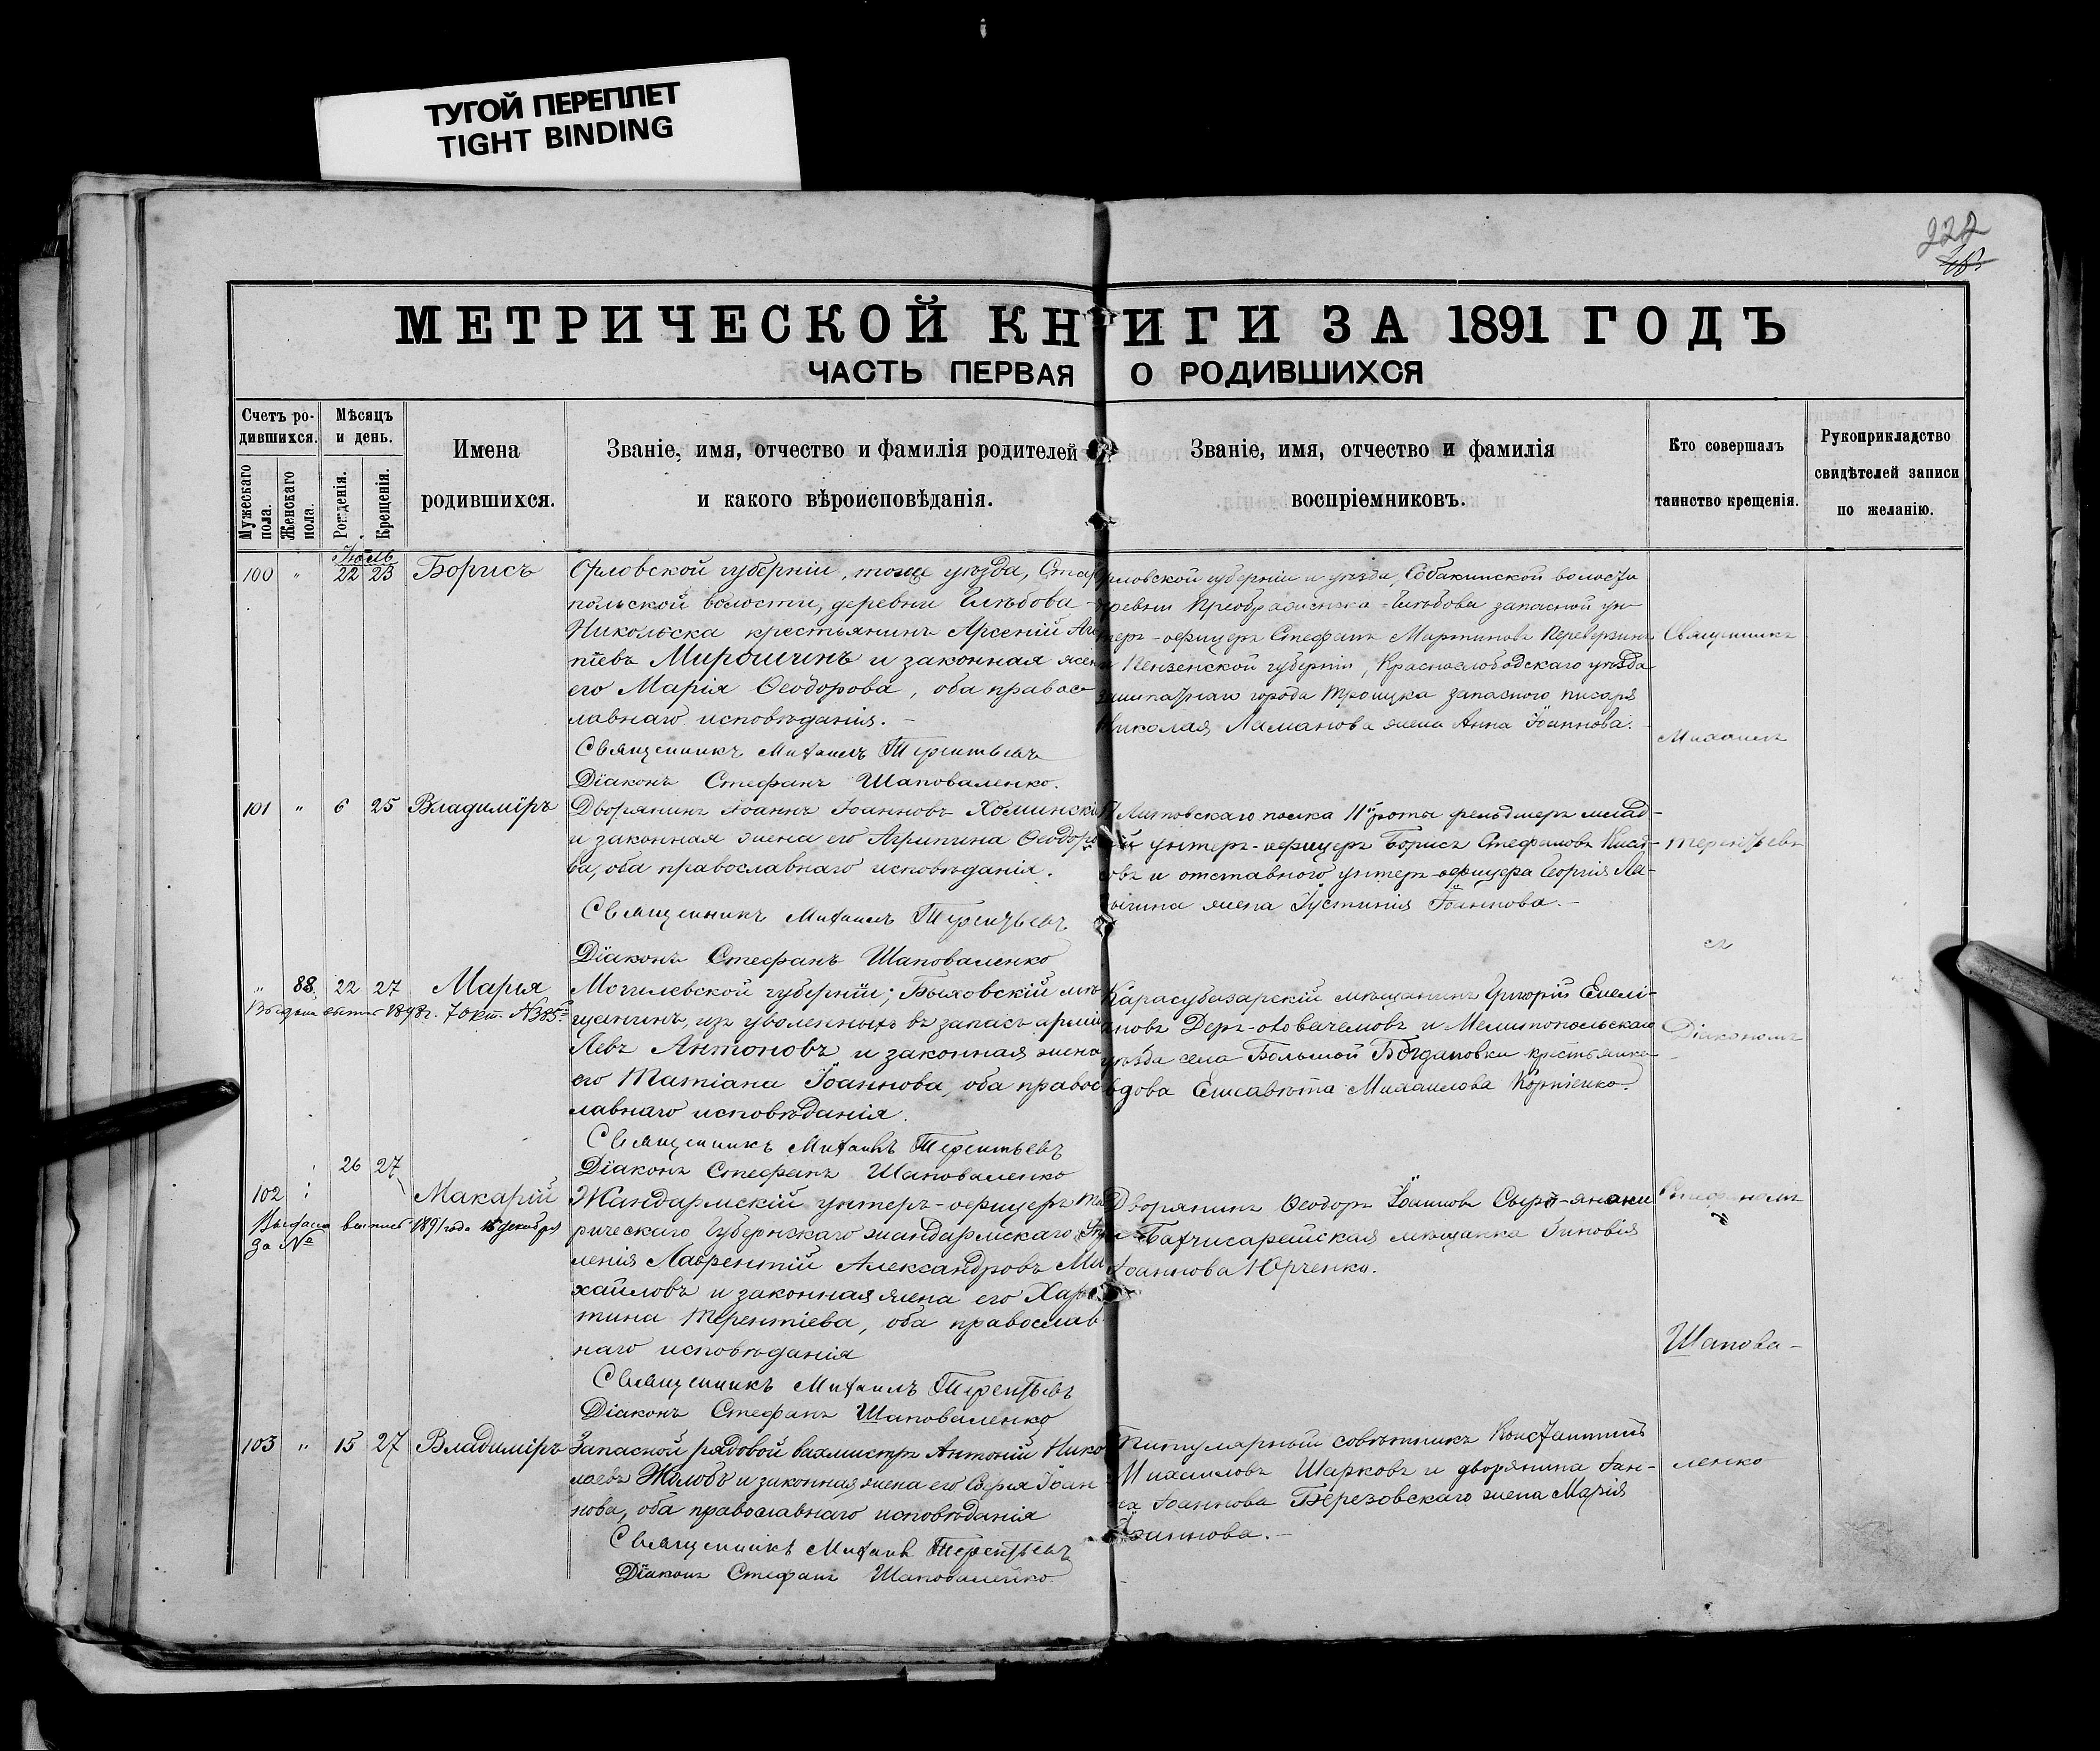 ТУГОЙ ПЕРЕПЛЕТ
TIGHT BINDING
222
МЕТРИЧЕСКОЙ КНИГИ ЗА 1891 ГОДЪ
ЧАСТЬ ПЕРВАЯ О РОДИВШИХСЯ
Счетъ родившихся.
Мужескаго пола.
Женскаго пола.
Мѣсяцъ и день.
Рожденія.
Крещенія.
Имена родившихся.
Званіе, имя, отчество и фамилія родителей и какого вѣроисповѣданія.
Званіе, имя, отчество и фамилія воспріемниковъ.
Кто совершалъ таинство крещенія.
Рукоприкладство свидѣтелей записи по желанію.
Іюль
100 " 22 23 Борисъ
Орловской губерніи, того же уѣзда,
польской волости, деревни Глѣбова-
Никольска крестьянинъ Арсеній
Мирошинъ и законная жена
его Марія Ѳеодорова, оба правос-
лавнаго исповѣданія. -
Священникъ Михаилъ Терентьевъ
Діаконъ Стефанъ Шаповаленко.
Орловской губерніи и уѣзда, Собакинской волости
деревни Преображенска-Глѣбова запасной ун-
теръ-офицеръ Стефанъ Мартиновъ Переверзинъ
и Пензенской губерніи, Краснослободскаго уѣзда
заштатнаго города Троицка запасного писаря
Николая Ламанова жена Анна Іоаннова.
101 " 6 25 Владиміръ
Дворянинъ Іоаннъ Іоанновъ Хоминскій
и законная жена его Агрипина Ѳеодоро-
ва, оба православнаго исповѣданія.
Священникъ Михаилъ Терентьевъ
Діаконъ Стефанъ Шаповаленко
Литовскаго полка 11й роты фельдшеръ млад-
шій унтеръ-офицеръ Борисъ Стефановъ
овъ и отставного унтеръ-офицера Георгія
жена Іустинія Іоаннова. -
" 88 22 27 Марія
Выдана 1898 г. 7 окт. № 385
Могилевской губерніи, Быховскій мѣ-
щанинъ, изъ уволенныхъ въ запасъ арміи
Левъ Антоновъ и законная жена
его Татіана Іоаннова, оба правос-
лавнаго исповѣданія.
Священникъ Михаилъ Терентьевъ
Діаконъ Стефанъ Шаповаленко
Карасубазарскій мѣщанинъ Григорій
и Мелитопольскаго
уѣзда села Большой Богдановки крестьянка
вдова Елисавета Михаилова Корніенко.
102 26 27 Макарій
Выдана выпись 1891 года 15 декабря
за №
Жандармскій унтеръ-офицеръ Тав-
рическаго Губернскаго жандармскаго Управ-
ленія Лаврентій Александровъ Ми-
хайловъ и законная жена его Хари-
тина Терентіева, оба православ-
наго исповѣданія
Священникъ Михаилъ Терентьевъ
Діаконъ Стефанъ Шаповаленко
Дворянинъ Ѳеодоръ Іоанновъ
и Бахчисарайская мѣщанка Зиновія
Іоаннова Юрченко.
103 " 15 27 Владиміръ
Запасной рядовой вахмистръ Антоній Нико-
лаевъ Жолобъ и законная жена его Вѣра Іоан-
нова, оба православнаго исповѣданія
Священникъ Михаилъ Терентьевъ
Діаконъ Стефанъ Шаповаленко
Титулярный совѣтникъ Константинъ
Михаиловъ Шарковъ и дворянина Іан-
на Іоаннова Березовскаго жена Марія
Іоаннова. -
Священникъ
Михаилъ
Терентьевъ
съ
Діакономъ
Стефаномъ
Шапова-
ленко